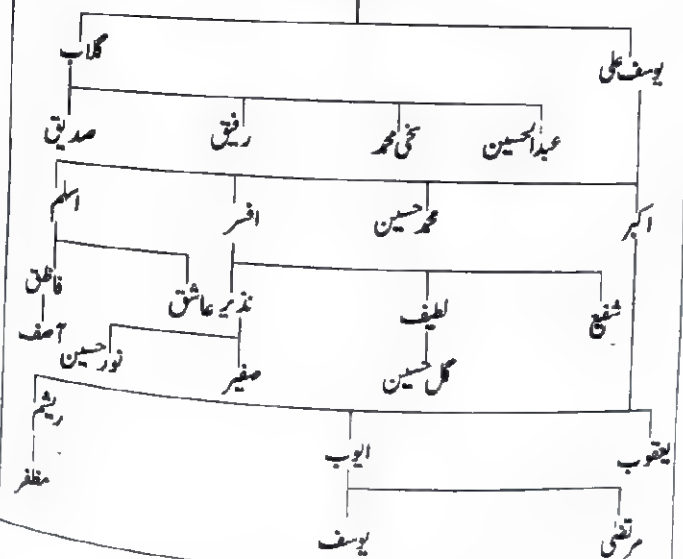 یوسف علی گلاب
عبدالحسین سخی محمد رفیق صدیق
اکبر محمد حسین افسر اسلم
شفیع لطیف نذیر عاشق فائق
گل حسین صفیر نور حسین آصف
یعقوب ایوب ریشم
مظفر
مرتضیٰ یوسف